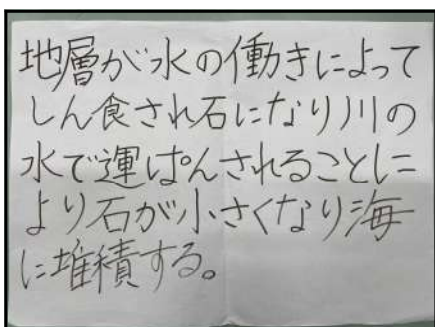 地層が水の働きによって
しん食され石になり川の
水で運ぱんされることに
より石が小さくなり海
に堆積する。